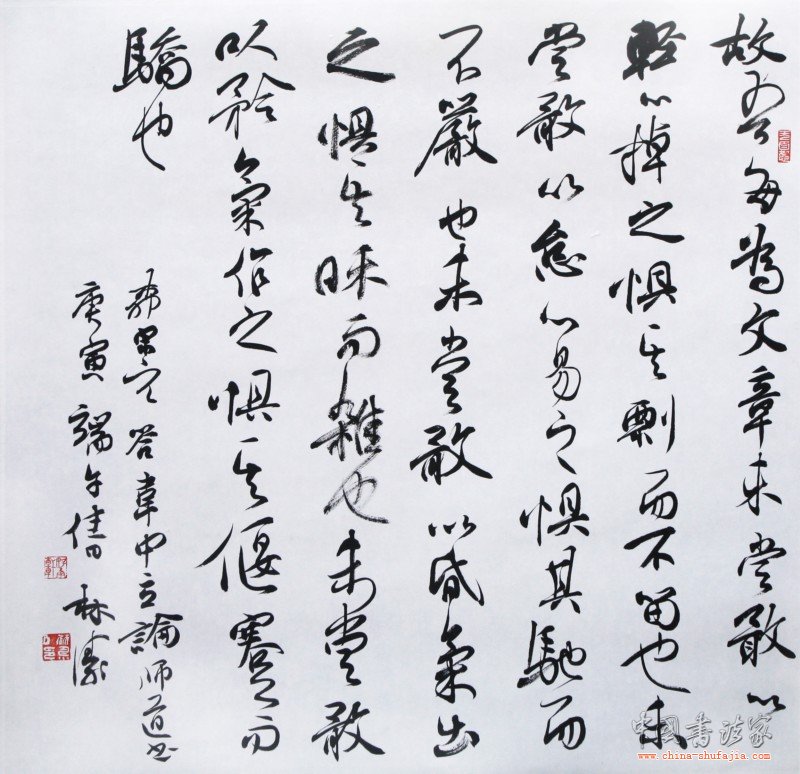 故吾每為文章未嘗敢以
輕心掉之懼其剽而不留也未
嘗敢以怠心易之懼其馳而
不嚴也未嘗敢以昏氣出
之懼其昧而雜也未嘗敢
以矜氣作之懼其偃蹇而
驕也
答韋中立論師道書
庚寅端午佳日
中国书法家
www.china-shufajia.com